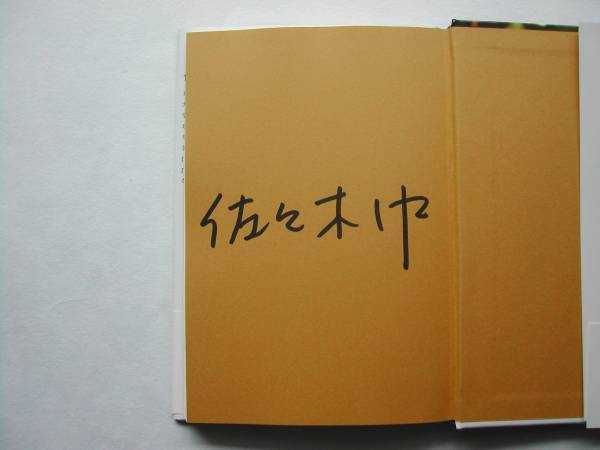 佐々木中